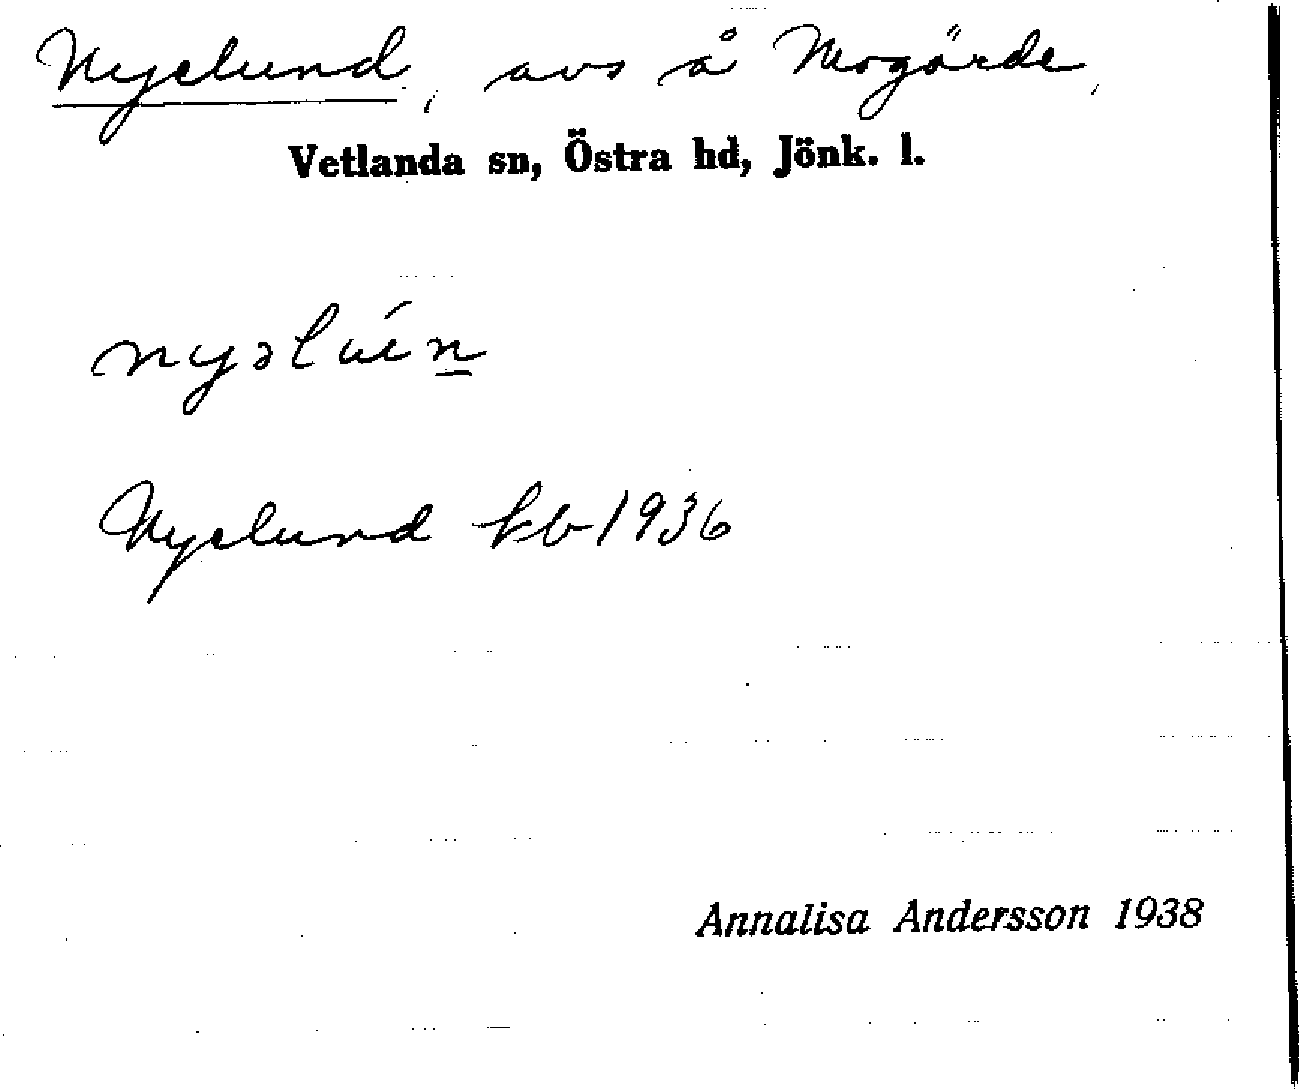 Nyelund, avs å Mogärde,
Vetlanda sn, Östra hd, Jönk. l.
Nyelund kb 1936
Annalisa Andersson 1938